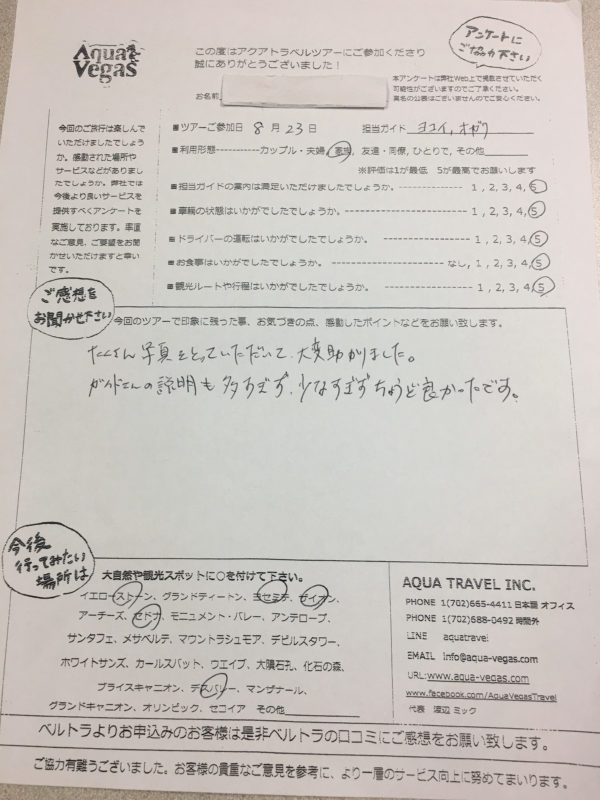 Aqua Vegas
この度はアクアトラベルツアーにご参加くださり
誠にありがとうございました！
アンケートに
ご協力下さい
本アンケートは弊社Web上で掲載させていただく
可能性がございますのでご了承ください。
実名の公表はございませんのでご安心ください。
お名前
今回のご旅行は楽しんで
いただけましたでしょう
か。感動された場所や
サービスなどがありまし
たでしょうか。弊社では
今後より良いサービスを
提供すべくアンケートを
実施しております。率直
なご意見、ご要望をお聞
かせいただけますと幸い
です。
■ツアーご参加日 8 月 23 日 担当ガイド ヨコイ、オガワ
■利用形態----------カップル・夫婦、家族、友達・同僚、ひとりで、その他
※評価は1が最低 5が最高でお願いします
■担当ガイドの案内は満足いただけましたでしょうか。 ---------------- 1, 2, 3, 4, 5
■車輌の状態はいかがでしたでしょうか。 ---------------- 1, 2, 3, 4, 5
■ドライバーの運転はいかがでしたでしょうか。 ---------------- 1, 2, 3, 4, 5
■お食事はいかがでしたでしょうか。 ---------------- なし, 1, 2, 3, 4, 5
■観光ルートや行程はいかがでしたでしょうか。 ---------------- 1, 2, 3, 4, 5
ご感想を
お聞かせ下さい
今回のツアーで印象に残った事、お気づきの点、感動したポイントなどをお願い致します。
たくさん写真をとっていただいて、大変助かりました。
ガイドさんの説明も多すぎず、少なすぎずちょうど良かったです。
今後
行ってみたい
場所は
大自然や観光スポットに○を付けて下さい。
イエローストーン、グランドティートン、ヨセミテ、ザイオン、
アーチーズ、セドナ、モニュメント・バレー、アンテロープ、
サンタフェ、メサベルデ、マウントラシュモア、デビルスタワー、
ホワイトサンズ、カールスバット、ウエイブ、大隕石孔、化石の森、
ブライスキャニオン、デスバレー、マンザナール、
グランドキャニオン、オリンピック、セコイア その他
AQUA TRAVEL INC.
PHONE 1(702)665-4411 日本語 オフィス
PHONE 1(702)688-0492 時間外
LINE aquatravel
EMAIL info@aqua-vegas.com
URL:www.aqua-vegas.com
www.facebook.com/AquaVegasTravel
代表 渡辺 ミック
ベルトラよりお申込みのお客様は是非ベルトラの口コミにご感想をお願い致します。
ご協力有難うございました。お客様の貴重なご意見を参考に、より一層のサービス向上に努めてまいります。